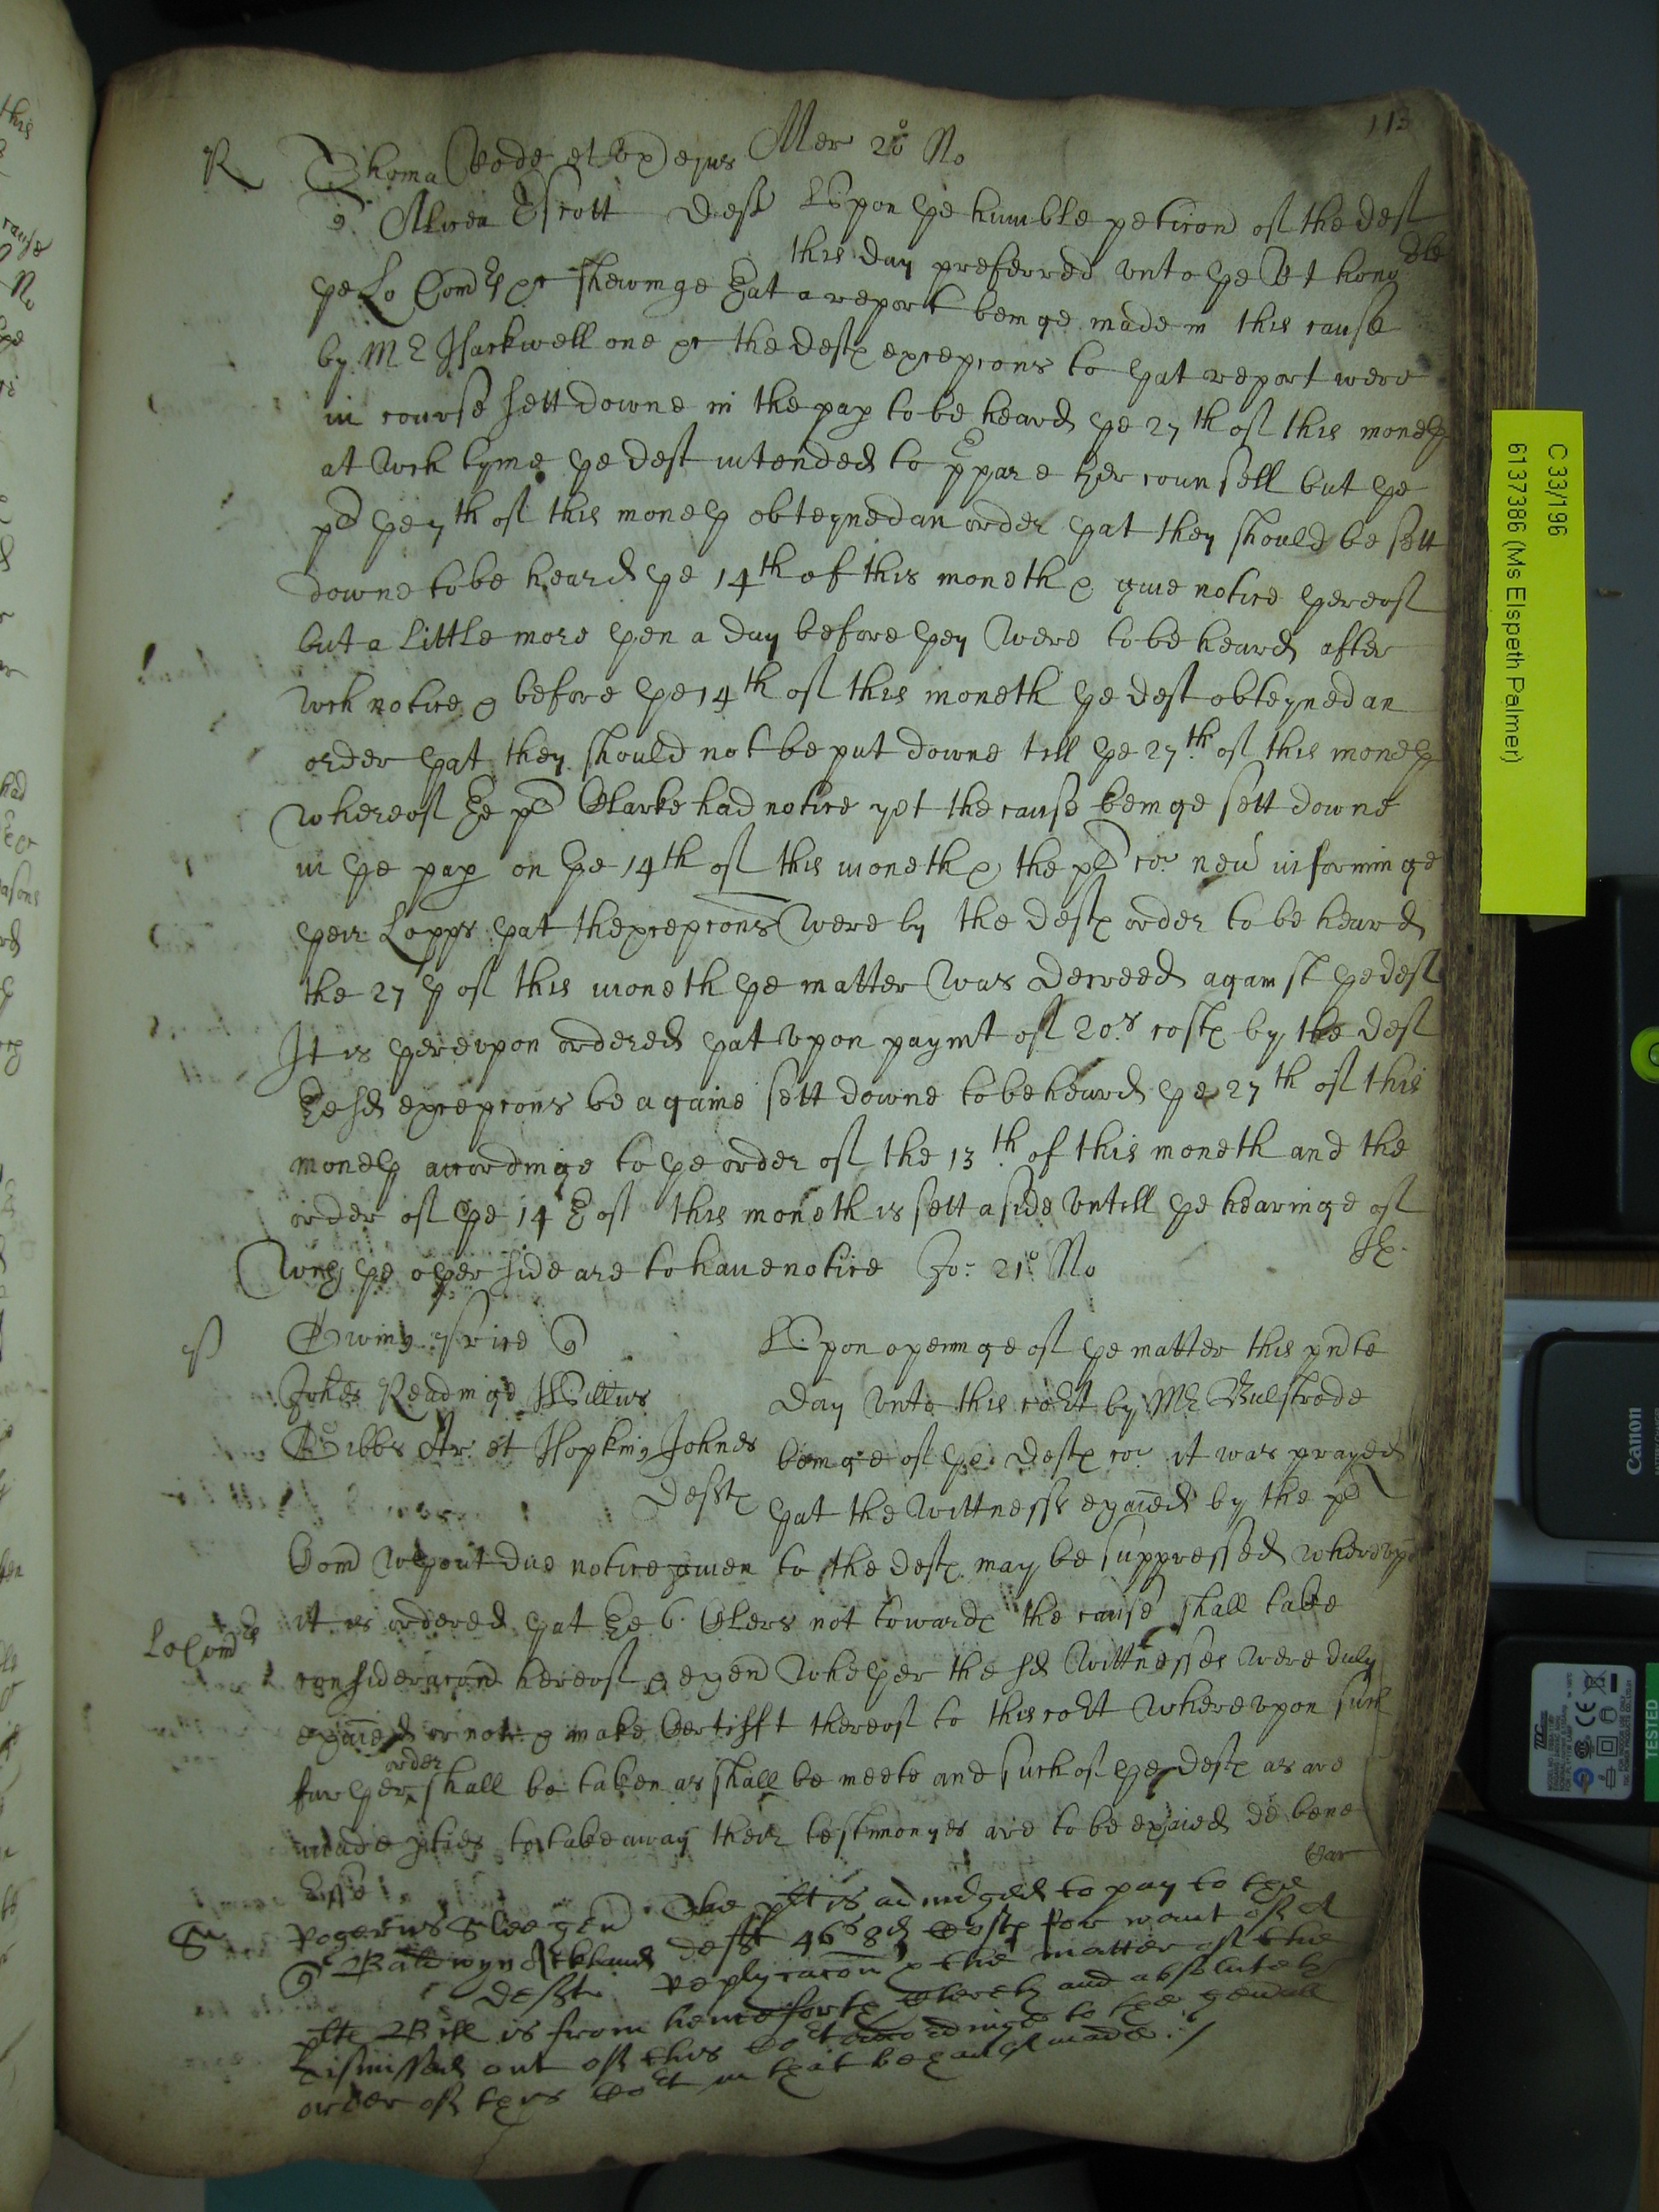 113
Mer 20o No
R Thoma Coode et ux ejus
Alicea Escott Deft Upon ye humble peticon of the Deft
this day preferred unto ye Rt honoble
ye Lo Comrs &c shewinge yat a report beinge made in this cause
by Mr Hackwell one &c the defts excepcons to yat report were
in course sett downe in the pap to be heard ye 27th of this moneth
at wch tyme ye deft intended to ppare her counsell but ye
plt ye 7th of this moneth obteyned an order yat they should be sett
downe to be heard ye 14th of this moneth & gave notice yereof
but a little more yen a day before yey were to be heard after
wch notice & before ye 14th of this moneth ye deft obteyned an
order yat they should not be put downe till ye 27th of this moneth
whereof ye plt Clarke had notice yet the cause beinge sett downe
in ye pap on ye 14th of this moneth & the plt co: nev informinge
yeir Lopps yat thexcepcons were by the defts order to be heard
the 27th of this moneth ye matter was decreed against ye deft
It is yereupon ordered yat upon paymt of 20s costs by the deft
ye sd excepcons be againe sett downe to be heard ye 27th of this
moneth accordinge to ye order of the 13th of this moneth and the
order of ye 14th of this moneth is sett aside untill ye hearinge of
wch ye oyer side are to have notice Jo: 21o No
Owinus Price
Johes Readinge Willius
Gibbs Ar: et Hopkin Johnes
Deftes
Upon openinge of ye matter this pnte
day unto this cort by Mr Bulstrode
beinge of ye defts co: it was prayed
yat the wittnesses exaied by the plt
Com wthout due notice given to the defts may be suppressed whereupon
Lo Comrs
it is ordered yat ye 6 Clers not towards the cause shall take
consideracon hereof & exam wheyer the sd wittnesses were duly
exaied or not & make Certifft thereof to this cort whereupon such
furyer order shall be taken as shall be meete and such of ye defts as are
made pties to take away their testimonyes are to be exaied de bene
esse
Car
Rogerus Slee gen
Baldwyn Ackland
Deftte
The plt is adiudged to pay to the
deft 46s 8d costs for want of a
replycacon & the matter of the
plte Bill is from henceforth cleerely and absolutely
dismissed out of this cort accordinge to the genrall
order of this cort in that behalf made
C 33/196
6137386 (Ms Elspeth Palmer)
Canon
TESTED